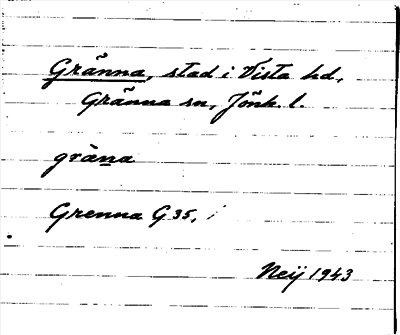 Gränna, stad i Vista hd,
Gränna sn, Jönk. l.
gràna
Grenna G 35,
Neij 1943